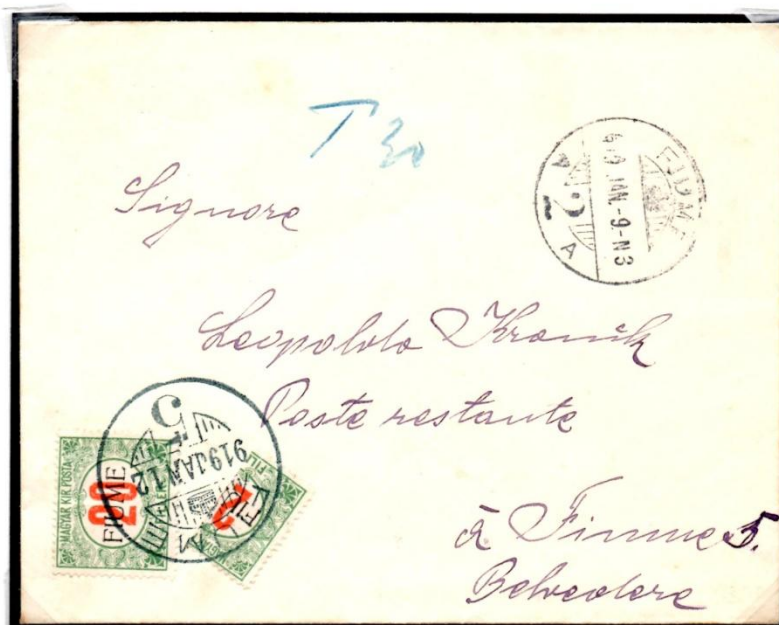 T 30
FIUME
919 JAN.-9.-N3
2
A A
Signore
Leopoldo
Poste restante
à Fiume 5.
Belvedere
5
919 JAN 12
FIUM
MAGYAR KIR. POSTA
FIUME
20
FIL